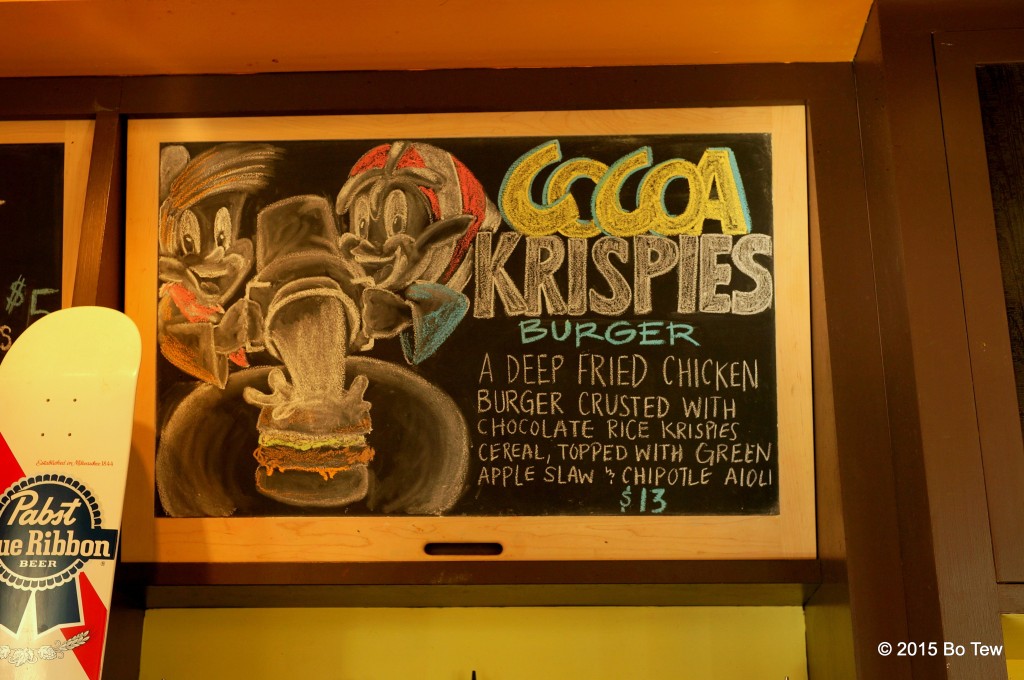 COCOA
KRISPIES
BURGER
A DEEP FRIED CHICKEN
BURGER CRUSTED WITH
CHOCOLATE RICE KRISPIES
CEREAL, TOPPED WITH GREEN
APPLE SLAW & CHIPOTLE AIOLI
$13
$5
S
Established in Milwaukee 1844
Pabst
ue Ribbon
BEER
© 2015 Bo Tew